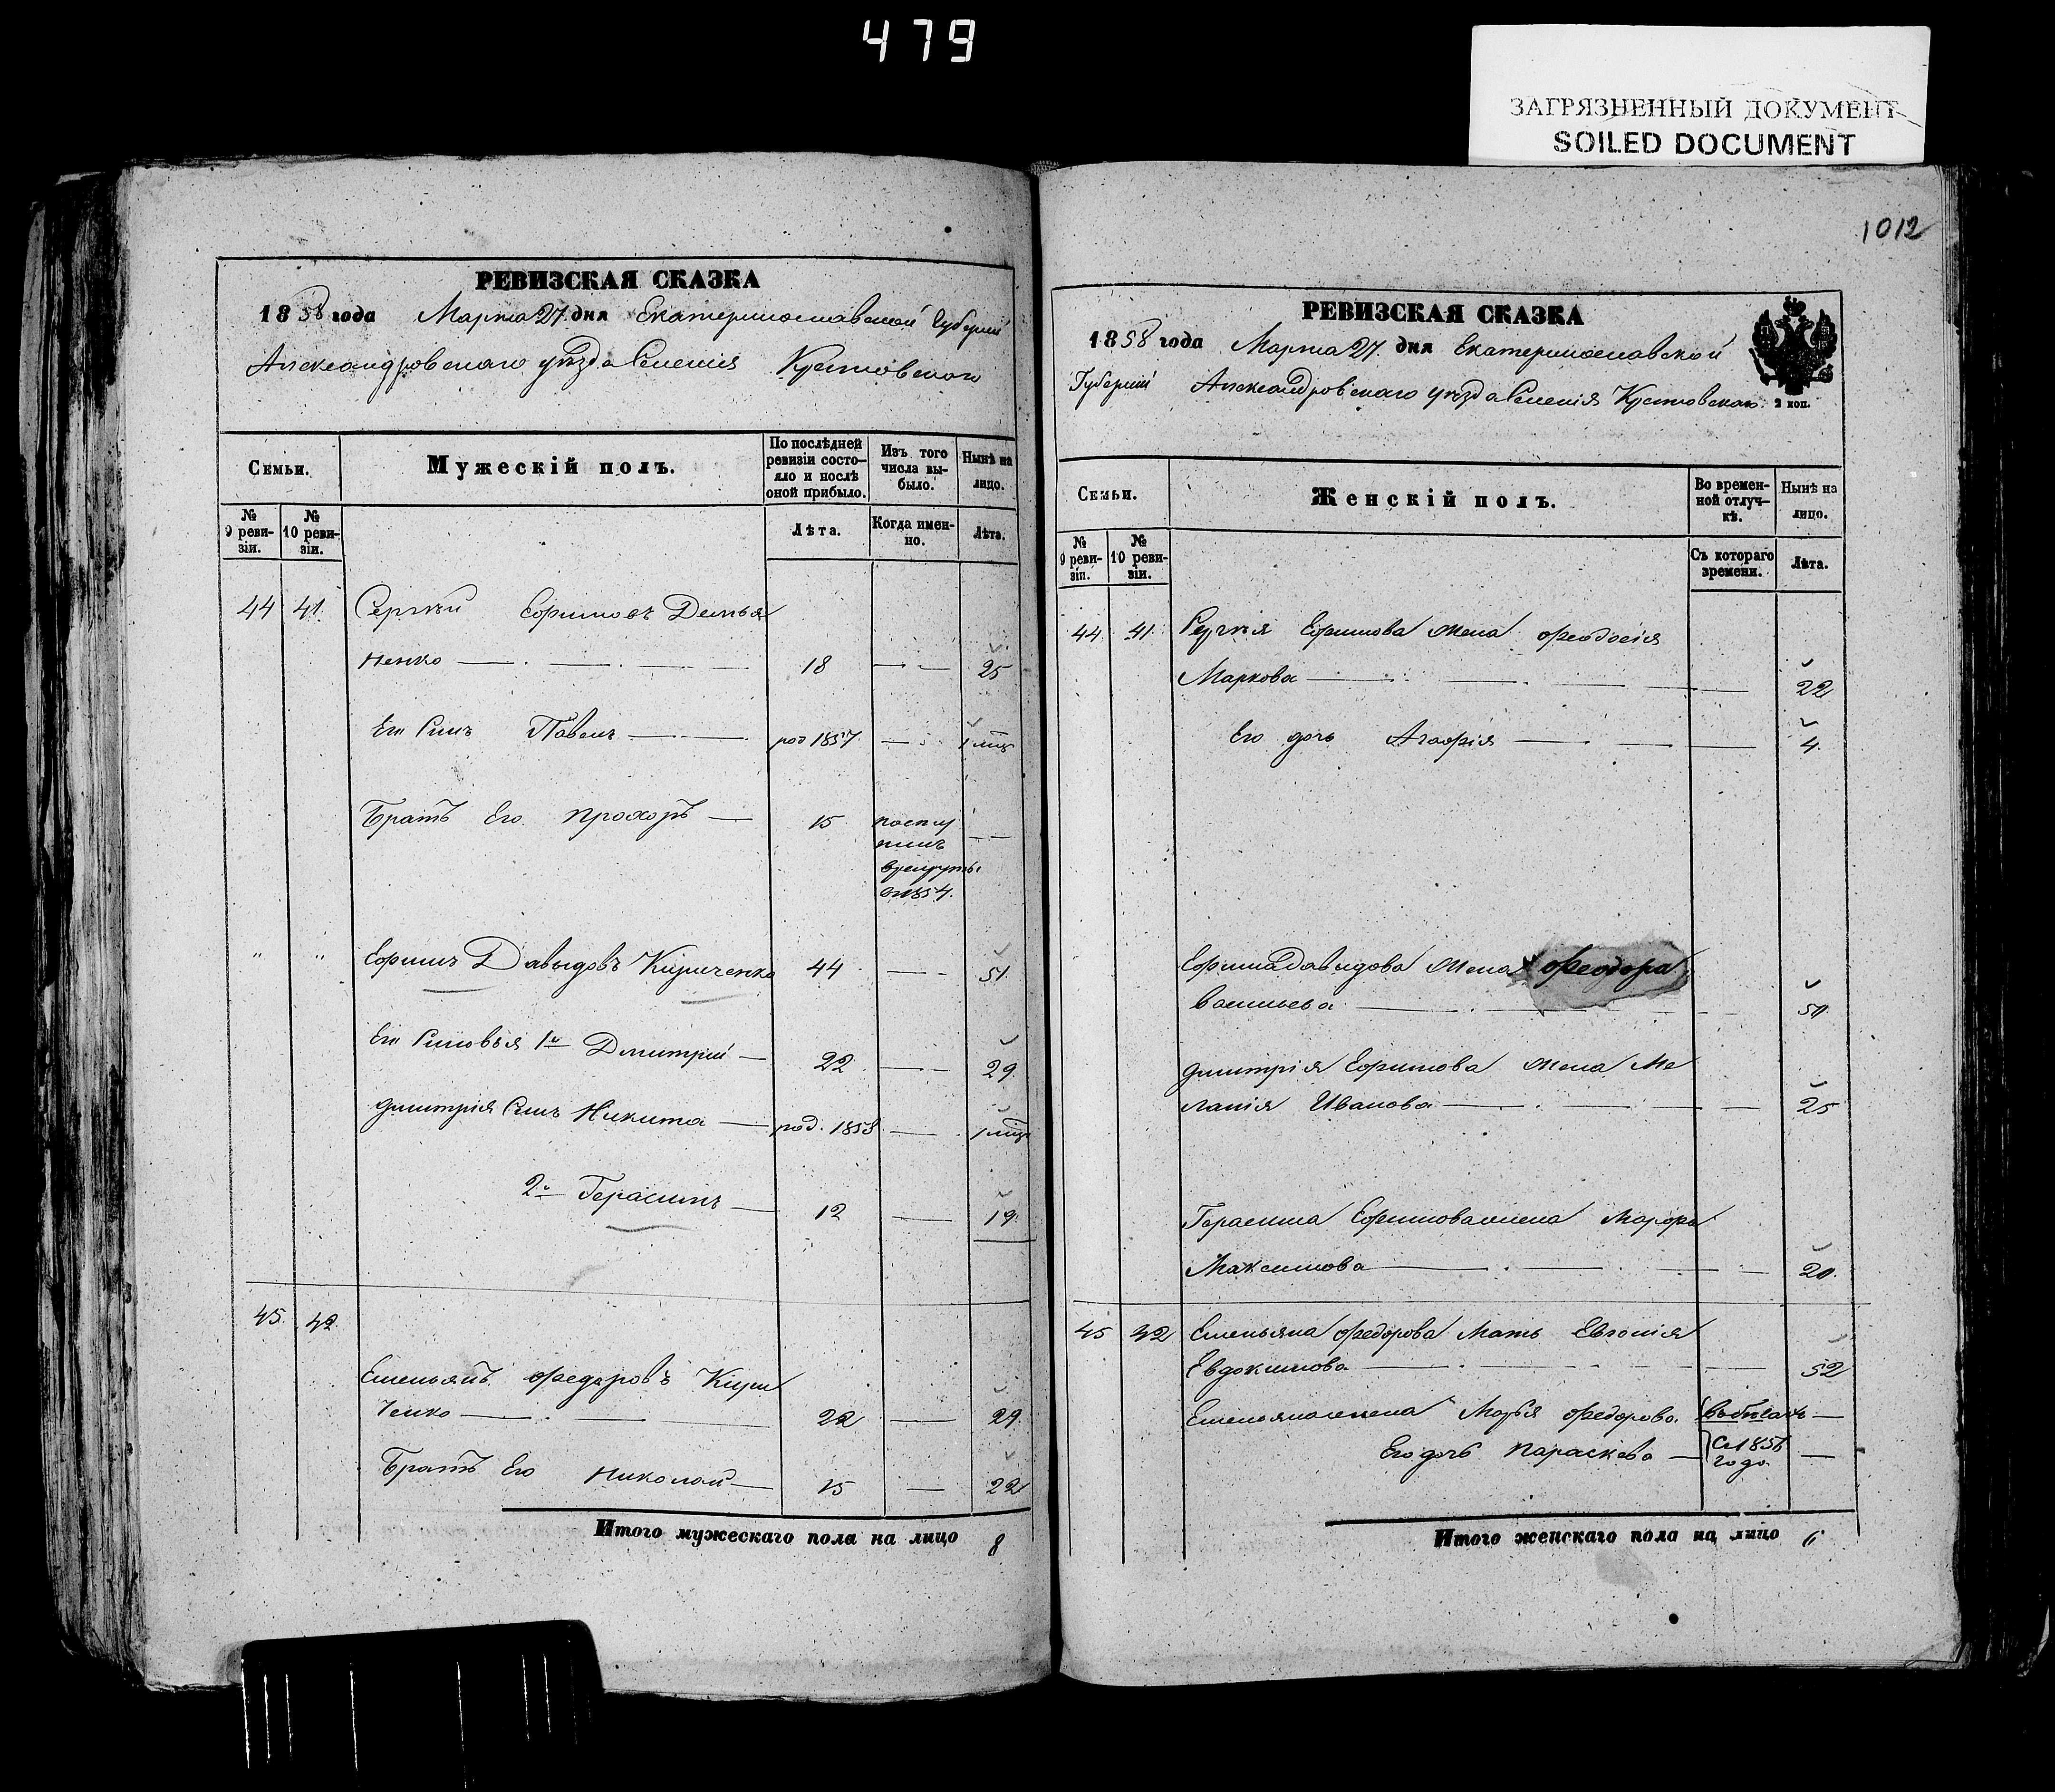 479
ЗАГРЯЗНЕННЫЙ ДОКУМЕНТ
SOILED DOCUMENT
РЕВИЗСКАЯ СКАЗКА
1858 года Марта 27. дня Екатеринославской Губерніи
Александровскаго уѣзда Селенія
Семьи.
Мужескій полъ.
По послѣдней ревизіи состо-
яло и послѣ
оной прибыло.
Изъ того
числа вы-
было.
Нынѣ на
лицо.
№
9 реви-
зіи.
№
10 реви-
зіи.
Лѣта.
Когда имен-
но.
Лѣта.
44 41. Сергѣй Ефимовъ Демья
ненко 18 25
Его Сынъ Павелъ род 1857. 1 мѣц
Братъ Его Прохоръ 15 посту
пилъ
въ рекруты
1854.
" " Ефимъ Давыдовъ Кириченко 44 51.
Его Сыновья 1й Дмитрій 22 29.
Дмитрія Сынъ Никита род. 1858 1 мѣц
2й Герасимъ 12 19.
45. 42.
Емельянъ Федоровъ Кири
ченко 22 29.
Братъ Его Николай 15 22
Итого мужескаго пола на лицо 8
1012
РЕВИЗСКАЯ СКАЗКА
1858 года Марта 27. дня Екатеринославской
Губерніи Александровскаго уѣзда Селенія
2 коп.
Семьи.
Женскій полъ.
Во времен-
ной отлуч-
кѣ.
Нынѣ на
лицо.
№
9 реви-
зіи.
№
10 реви-
зіи.
Съ котораго
времени.
Лѣта.
44. 41. Сергѣя Ефимова жена Феодосія
Маркова 22
Его дочь Агафія 4.
Ефима Давыдова жена Феодора
Васильева 50.
Дмитрія Ефимова жена Ме
ланія Иванова 25
Герасима Ефимова жена Марфа
Максимова 20.
45 42 Емельяна Федорова Мать Евгенія
Евдокимова 52
Емельяна жена Марья Федорова.
Его дочь Параскева
года
Итого женскаго пола на лицо 6